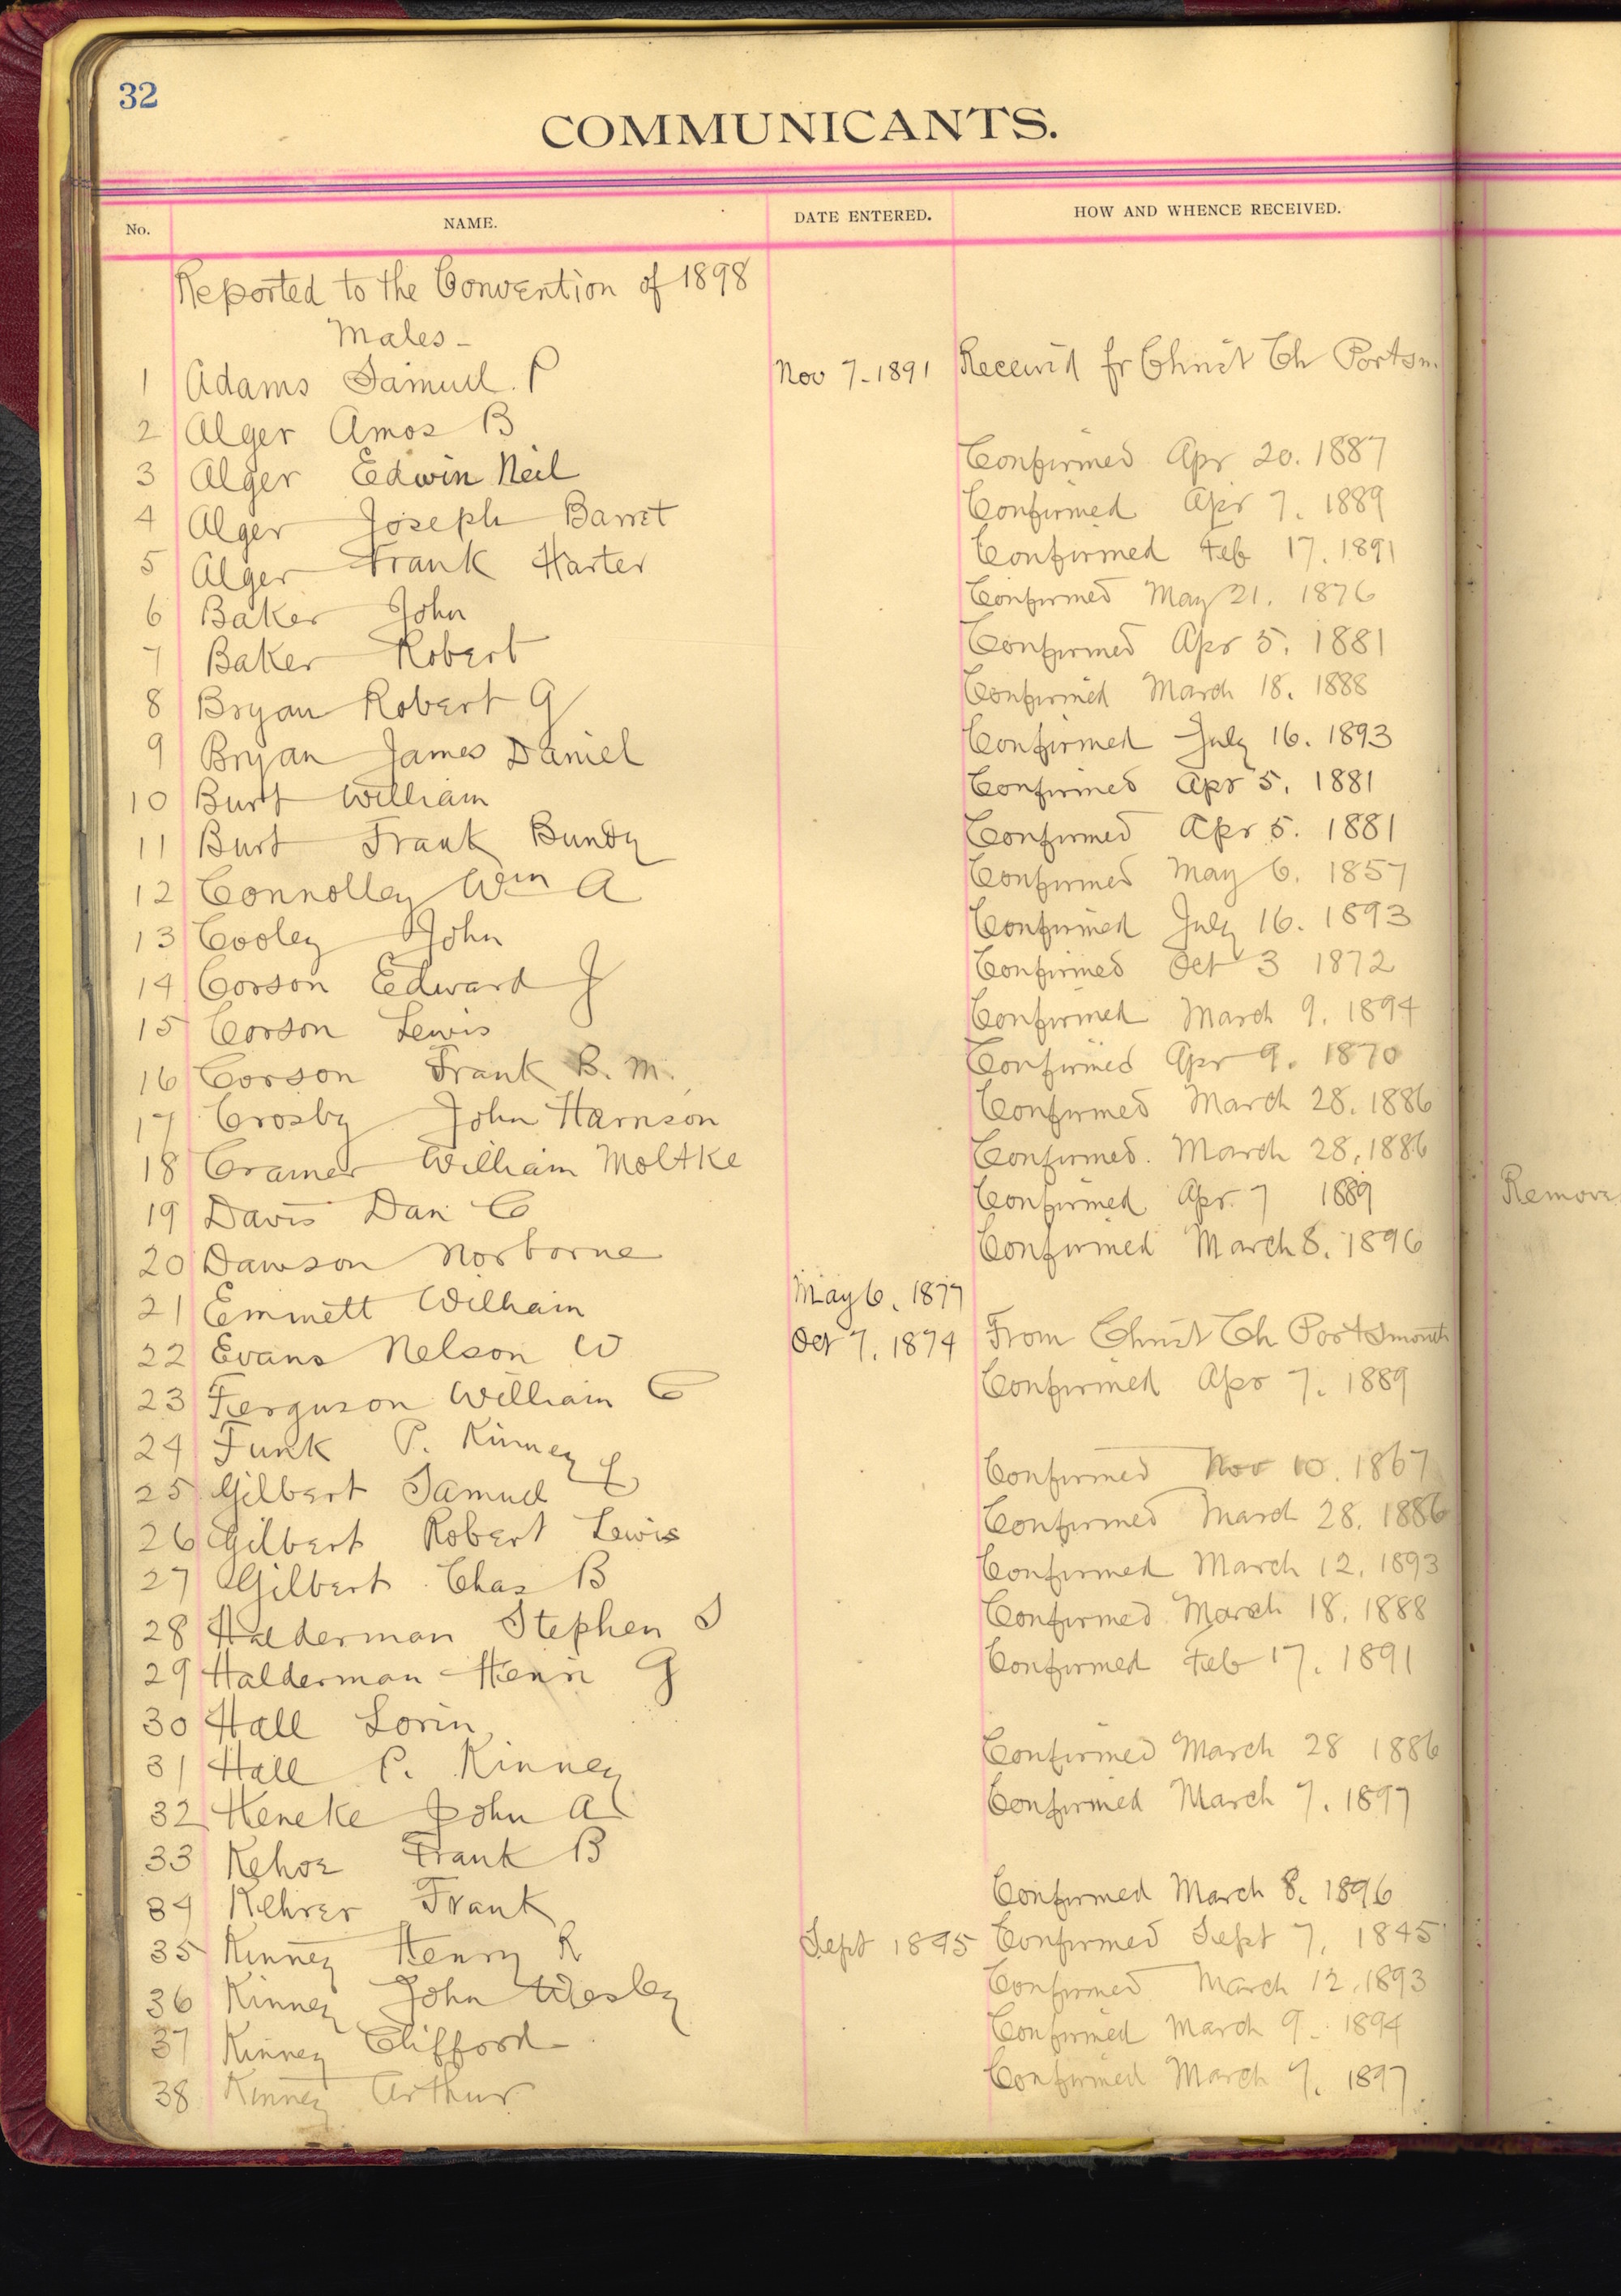 32
COMMUNICANTS.
No. NAME. DATE ENTERED. HOW AND WHENCE RECEIVED.
Reported to the Convention of 1898
Males -
1 Adams Samuel. P Nov 7-1891 Received fr Christ Ch Portsm.
2 Alger Amos B
3 Alger Edwin Neil Confirmed Apr 20. 1887
4 Alger Joseph Barret Confirmed Apr 7. 1889
5 Alger Frank Harter Confirmed Feb 17. 1891
6 Baker John Confirmed May 21. 1876
7 Baker Robert Confirmed Apr 5. 1881
8 Bryan Robert G Confirmed March 18. 1888
9 Bryan James Daniel Confirmed July 16. 1893
10 Burt William Confirmed Apr 5. 1881
11 Burt Frank Bundy Confirmed Apr 5. 1881
12 Connolley Wm A Confirmed May 6. 1857
13 Cooley John Confirmed July 16. 1893
14 Corson Edward J Confirmed Oct 3 1872
15 Corson Lewis Confirmed March 9. 1894
16 Corson Frank B. M. Confirmed Apr 9. 1870
17 Crosby John Harrison Confirmed March 28. 1886
18 Cramer William Moltke Confirmed. March 28, 1886
19 Davis Dan C Confirmed Apr. 7 1889
20 Dawson Norborne Confirmed March 8. 1896
21 Emmett William May 6. 1877
22 Evans Nelson W Oct 7. 1874 From Christ Ch Portsmouth
23 Ferguson William C Confirmed Apr 7. 1889
24 Funk P. Kinney
25 Gilbert Samuel E Confirmed Nov 10. 1867
26 Gilbert Robert Lewis Confirmed March 28. 1886
27 Gilbert Chas B Confirmed March 12. 1893
28 Halderman Stephen S Confirmed March 18. 1888
29 Halderman Henri G Confirmed Feb 17. 1891
30 Hall Lorin
31 Hall P. Kinney Confirmed March 28 1886
32 Heneke John A Confirmed March 7. 1897
33 Kehoe Frank B
34 Kehrer Frank Confirmed March 8. 1896
35 Kinney Henry R Sept 1845 Confirmed Sept 7. 1845
36 Kinney John Wesley Confirmed March 12. 1893
37 Kinney Clifford Confirmed March 9. 1894
38 Kinney Arthur Confirmed March 7. 1897